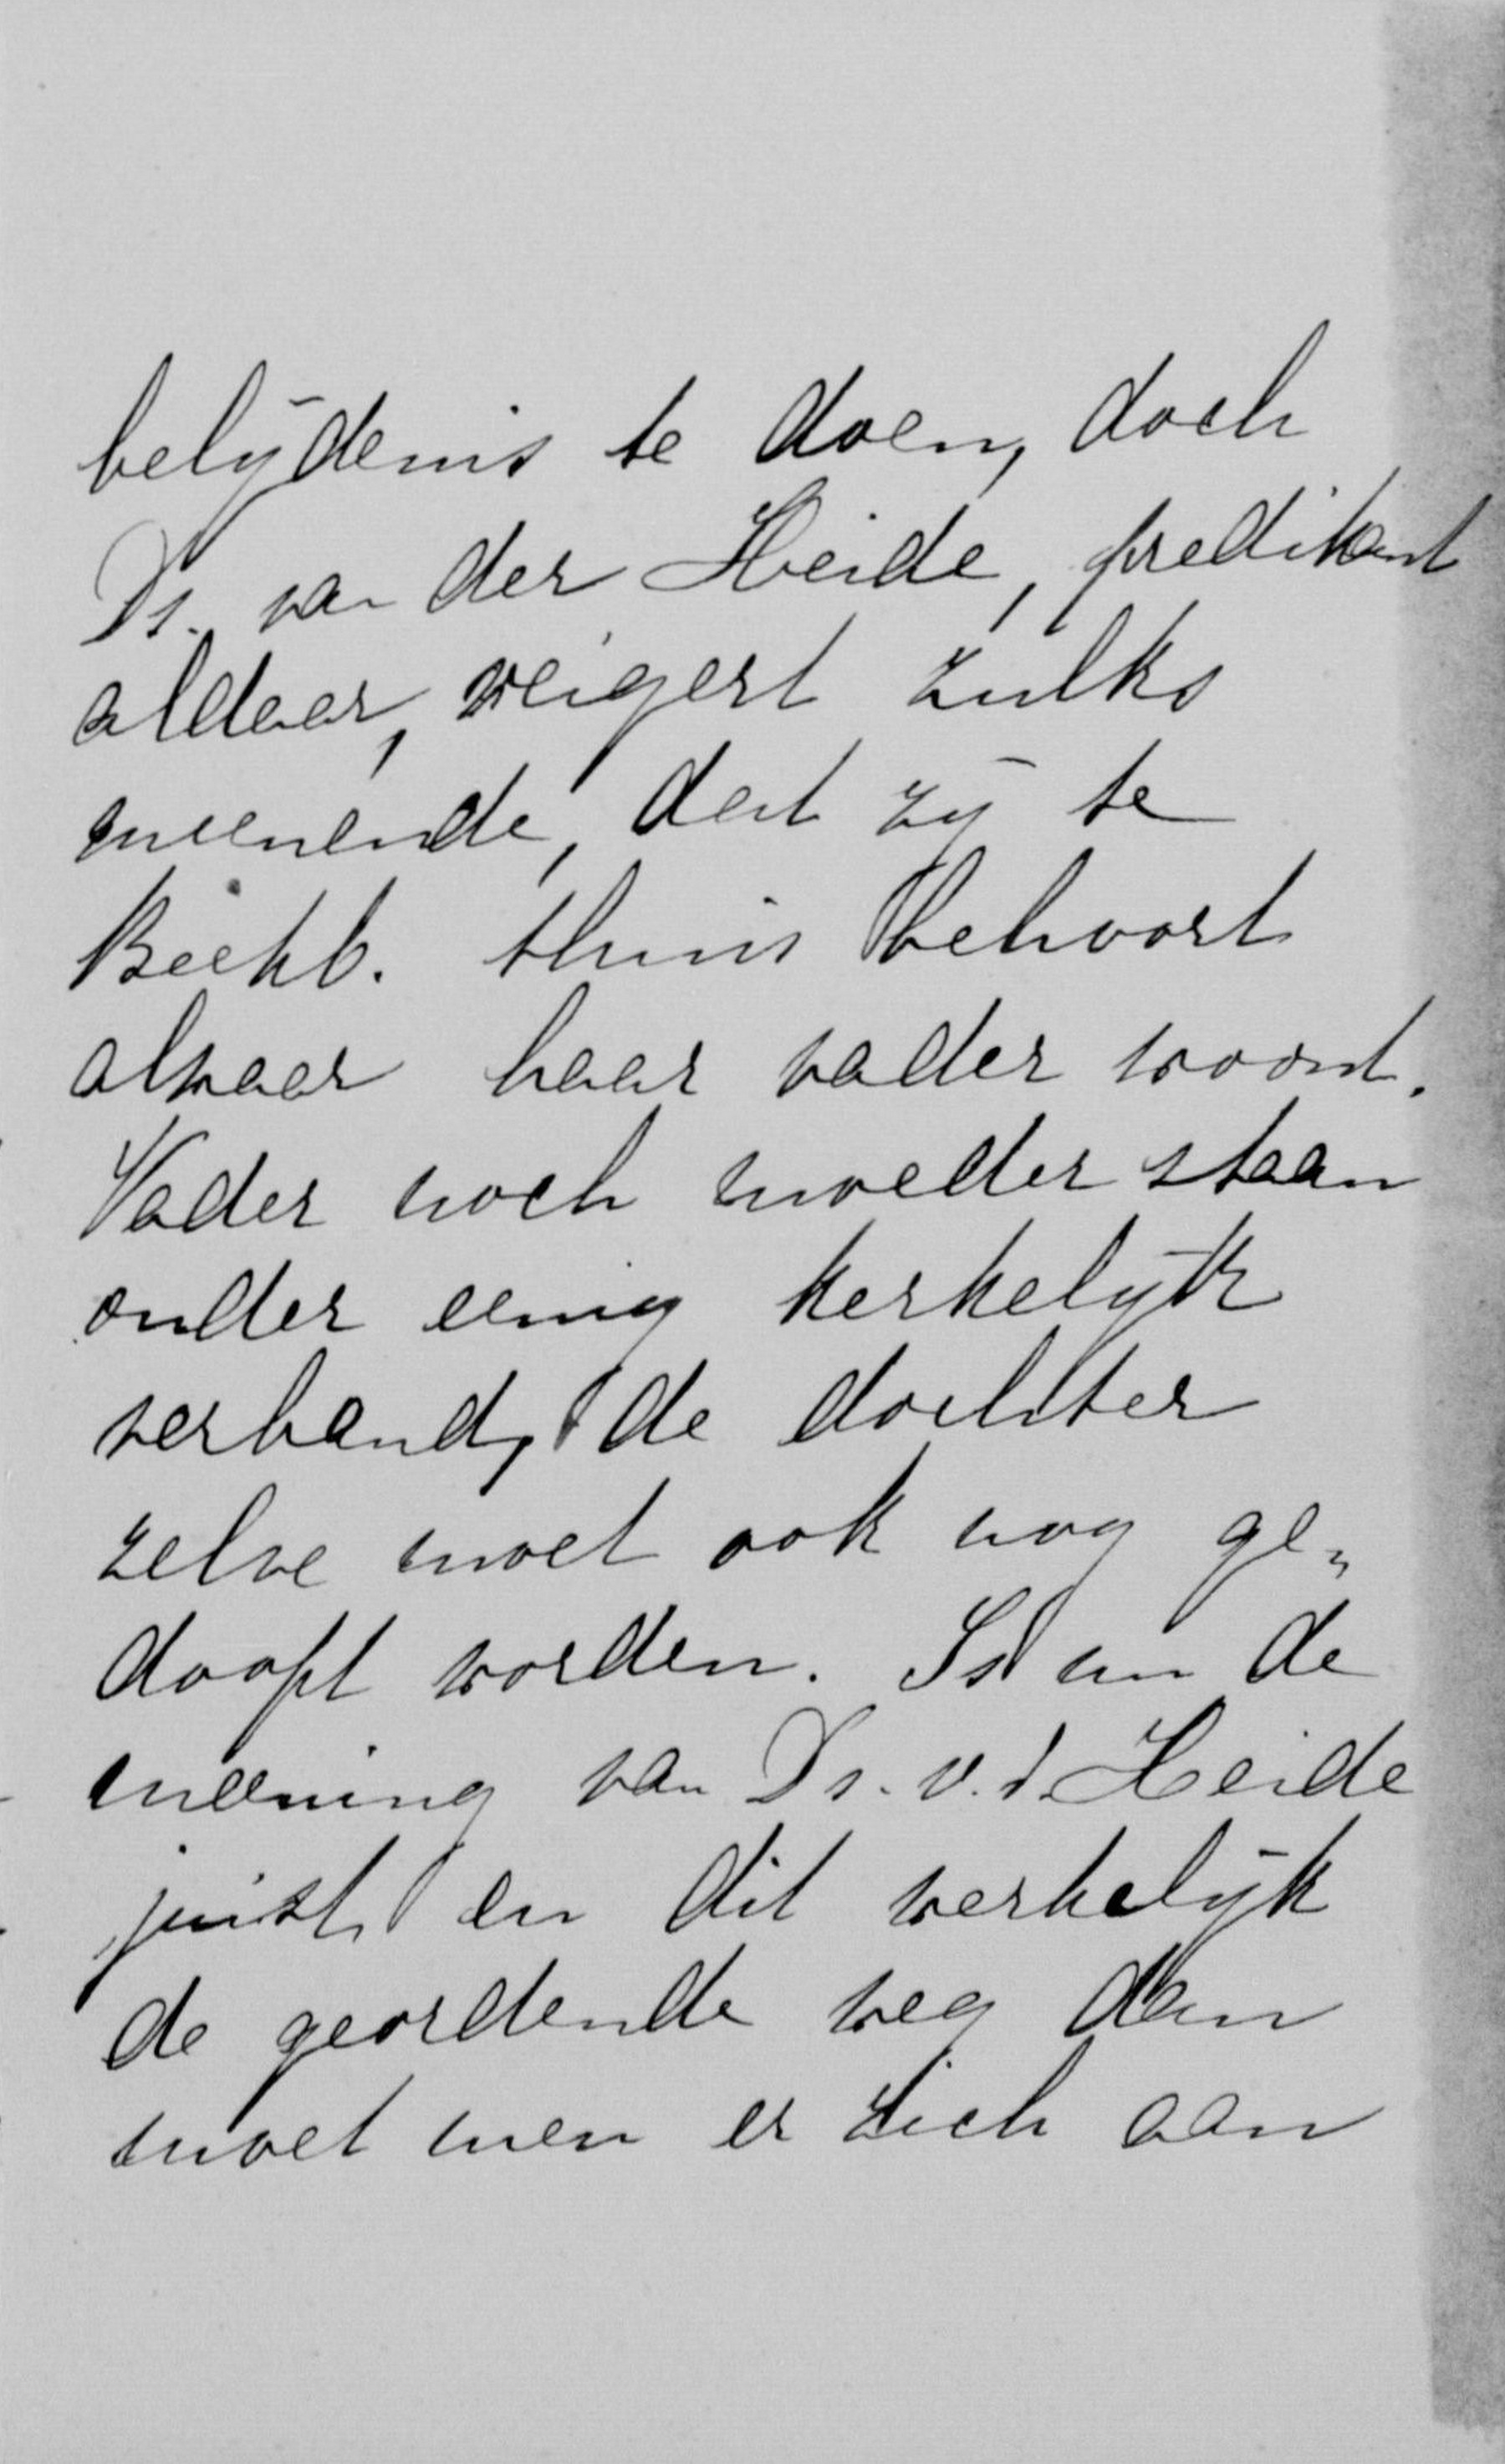 belijdenis te doen, doch
Ds. van der Heide, predikant
aldaar, weigert zulks
meenende, dat zij te
thuis behoort
alwaar haar vader woont.
Vader noch moeder staan
onder eenig kerkelijk
verband, de dochter
zelve moet ook nog ge„
doopt worden. Is nu de
meening van Ds. v. d. Heide
juist en dit werkelijk
de geordende weg dan
moet men er zich aan